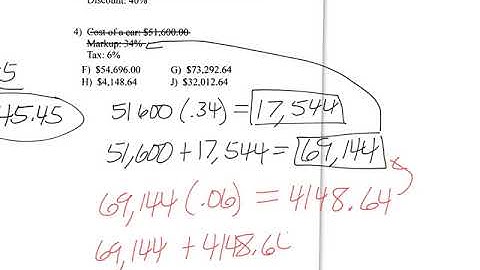 Discount: 40%
4) Cost of a car: $51,600.00
Markup: 34%
Tax: 6%
F) $54,696.00 G) $73,292.64
H) $4,148.64 J) $32,012.64
5
45.45
51600 (.34) = 17,544
51,600 + 17,544 = 69,144
69,144 (.06) = 4148.64
69,144 + 4148.6